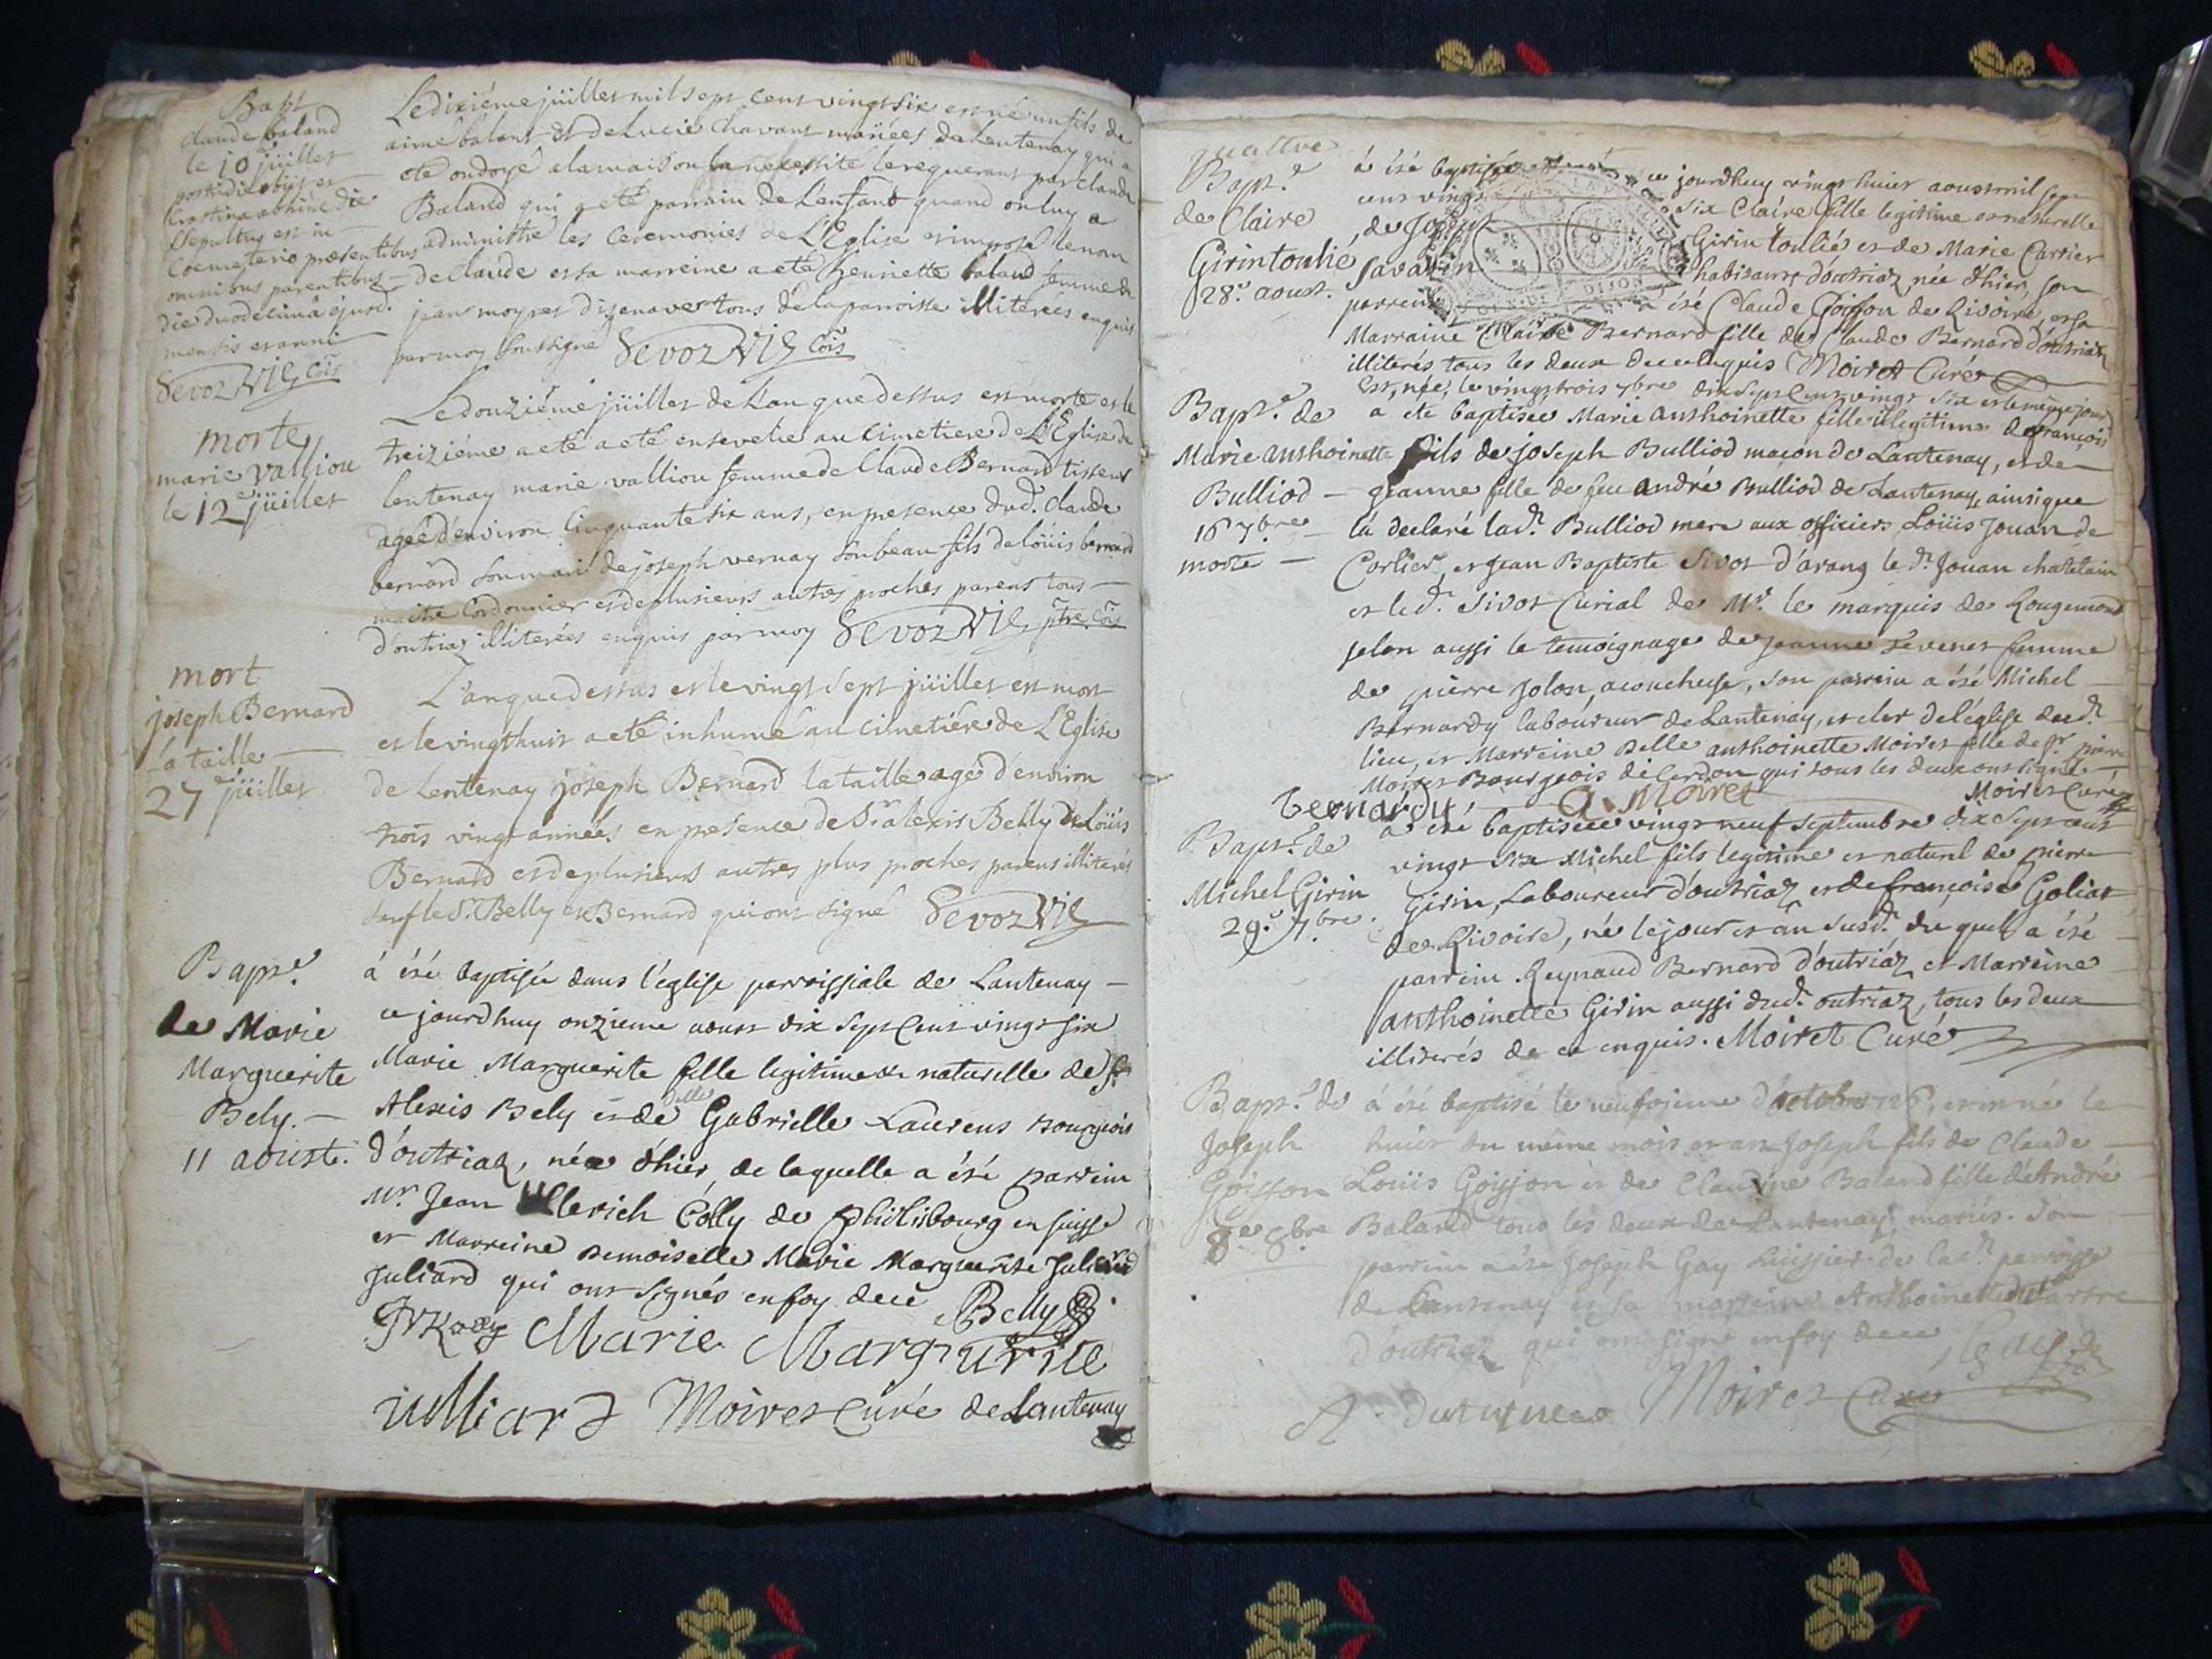 Bapt
claude baland
le 10 juillet
postridie obiit et
Crastina ab hinc die
Sepultus est in
Coemeterio praesentibus
omnibus parentibus
die duodecimâ ejusd.
mensis et anni
Devoz Vic Cois
Le dixiéme juillet mil sept cent vingt six est né un fils de
aimé baland et de Lucie Chavant mariées de Lentenay qui a
eté ondoyé a la maison la necessité le requerant par claude
Baland qui a eté parrain de L'enfant quand on luy a
administré les Ceremonies de L'Eglise et imposé le nom
de Claude et sa marreine a eté Henriette baland femme de
jean moyret d'izenave tous de la parroisse illiterées enquis
par moy soussigné Devoz Vic Cois
morte
marie vallion
le 12 juillet
Le douziéme juillet de L'an que dessus est morte et le
treiziéme a eté a eté ensevelie au cimetiere de L'Eglise de
lentenay marie vallion femme de Claude Bernard tissent
agée d'environ Cinquante six ans, en presence dud. claude
bernard son mari de joseph vernay son beau fils de loüis bernard
maitre Cordonnier et de plusieurs autres proches parens tous
d'outriaz illiterées enquis par moy Devoz Vic ptre Cois
mort
joseph Bernard
Lataille
27 juillet
L'an que dessus et le vingt sept juillet est mort
et le vingt huit a eté inhumé au cimetiére de L'Eglise
de Lentenay joseph Bernard lataille agé d'environ
trois vingt années en presence de Sr. alexis Belly de Loüis
Bernard et de plusieurs autres plus proches parens illiterés
sauf le Sr. Belly et Bernard qui ont signé Devoz Vic
Bapt.e
de Marie
Marguerite
Bely.
11 aoust.
á été baptisée dans l'église parroissiale de Lantenay
ce jourdhuy onzieme aoust dix sept Cent vingt six
Marie Marguerite fille legitime et naturelle de Sr.
Alexis Bely et de Delle Gabrielle Laurens Bourgeois
d'outriaz, née d'hier, de laquelle a été parrein
Mr. Jean Ullerich Colly de Philisbourg en suisse
et Marreine Demoiselle Marie Marguerite Juliard
Juliard qui ont signés en foy de ce Belly
Marie Margueritte
iulliard Moiret Curé de Lantenay
quattre
Bapt.e
de Claire
Girintoulié
28.e aoust.
á été baptisée ce jourdhuy vingt huit aoust mil sept
cens vingt six Claire fille legitime et naturelle
de Joseph Girin toulié et de Marie Carrier
Savarin habitants d'outriaz, née d'hier, son
parrein a été Claude Goisson de Rivoire, et sa
Marraine Claire Bernard fille de Claude Bernard d'outriaz
illiterés tous les deux de ce enquis Moiret Curé
Bapt.e de
Marie Anthoinette
Bulliod
16 7bre
morte
Est, née, le vingt trois 7bre dix sept Cent vingt six et le même jour
a été baptisée Marie Anthoinette fille illegitime de françois
fils de joseph Bulliod maçon de Lantenay, et de
jeanne fille de feu andré Bulliod de Lantenay, ainsi que
lá declaré lad.e Bulliod mere aux officiers Loüis Jouan de
Corlier, et jean Baptiste Sivot d'arang le d.t Jouan chatelain
et le d.t Sivot Curial de Mr. le marquis de Rougemont
selon aussi le temoignage de Jeanne Sevenet femme
de pierre Jolon, acoucheuse, son parrein a été Michel
Bernardy laboureur de Lantenay, et clerc de l'église dud.t
lieu, et Marreine Delle anthoinette Moiret fille de Sr pierre
Moiret Bourgeois de Cerdon qui tous les deux ont signé
Bernardy A. Moiret Moiret Curé
Bapt.e de
Michel Girin
29.e 7bre.
a été baptisé ce vingt neuf septembre dix sept cent
vingt six Michel fils legitime et naturel de pierre
Girin, Laboureur d'outriaz et de françoise Goliat
de Rivoire, né le jour et an susd.t du quel a été
parrein Reynaud Bernard d'outriáz et Marreine
anthoinette Girin aussi dud.t outriaz, tous les deux
illiterés de ce enquis. Moiret Curé
Bapt.e de
Joseph
Goisson
8.e 8bre
á été baptisé le neufvieme d'octobre 1726, et est né le
huit du même mois et an Joseph fils de Claude
Louis Goisson et de Claudine Baland fille d'André
Baland tous les deux de Lantenay mariés. Son
parrein a été Joseph Gay huissier de lad.e parroisse
de Lantenay et sa marreine Anthoinette dutartre
d'outriaz qui ont signé en foy de ce J Gay
Moiret Curé